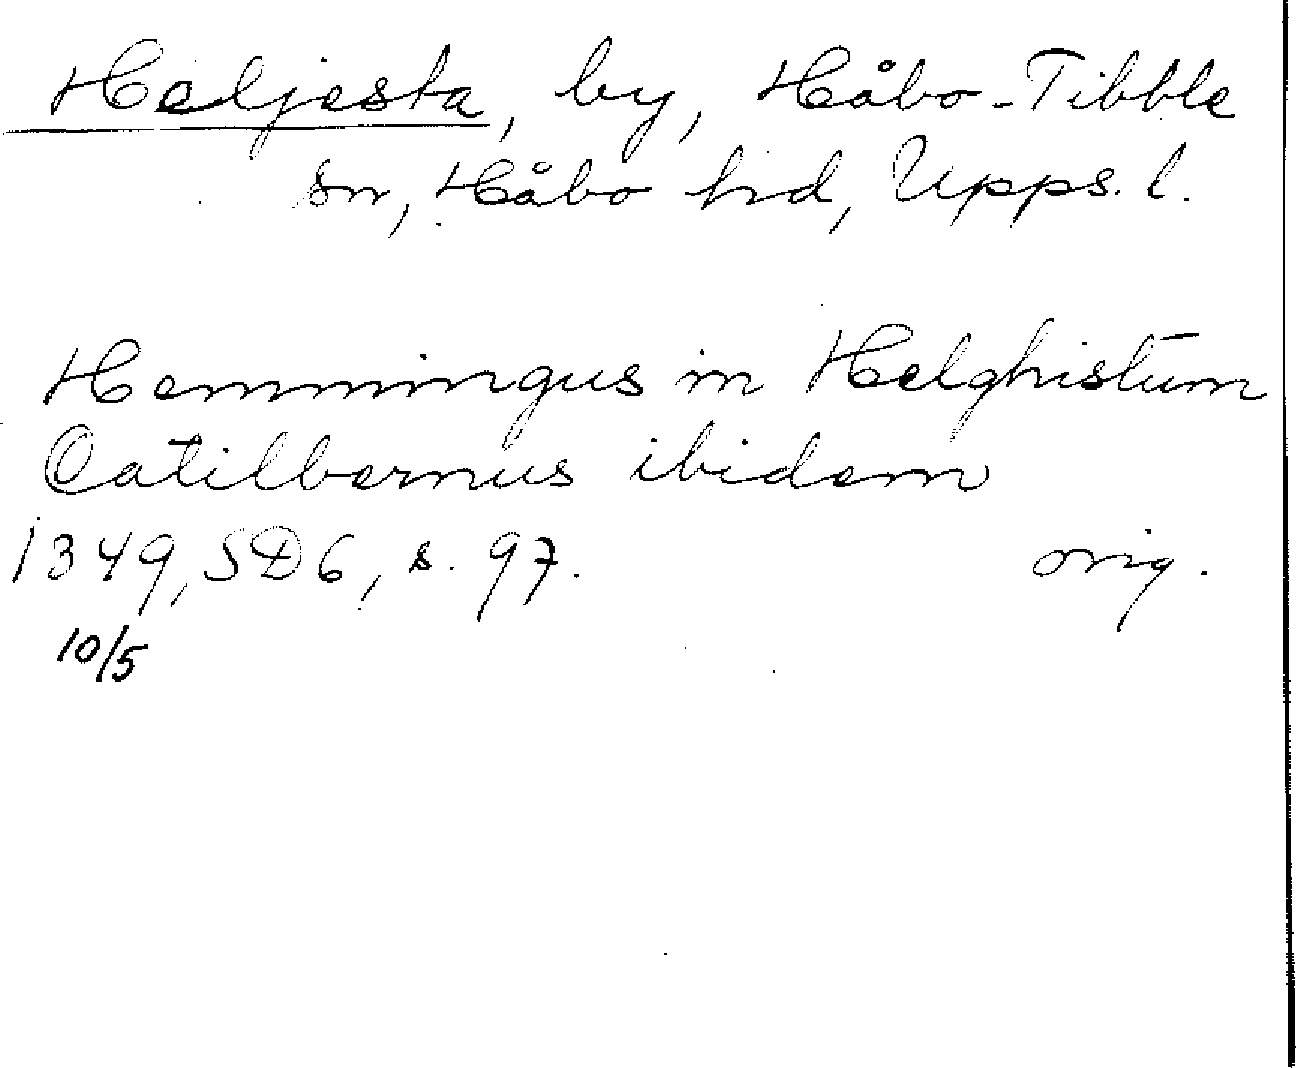 Heljesta, by, Håbo-Tibble
sn, Håbo hd, Upps. l.
Hemmingus in Helghistum
Catilbernus ibidem
1349, SD6, s. 97. orig.
10/5